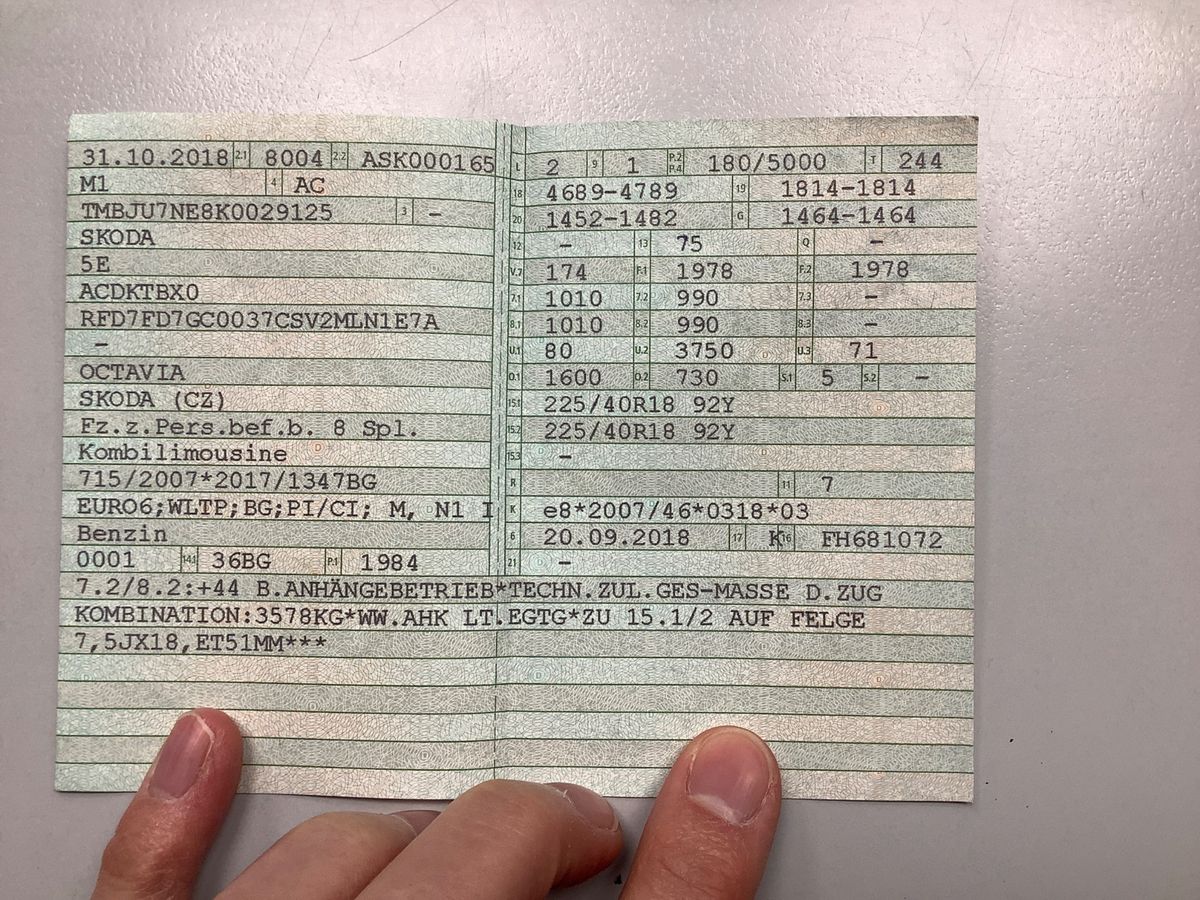 31.10.2018 2.1 8004 2.2 ASK000165
M1 4 AC
TMBJU7NE8K0029125 3 –
SKODA
5E
ACDKTBX0
RFD7FD7GC0037CSV2MLN1E7A
–
OCTAVIA
SKODA (CZ)
Fz.z.Pers.bef.b. 8 Spl.
Kombilimousine
715/2007*2017/1347BG
EURO6;WLTP;BG;PI/CI; M, N1 I
Benzin
0001 14.1 36BG P.1 1984
L 2 9 1 P.2 P.4 180/5000 T 244
18 4689–4789 19 1814–1814
20 1452–1482 G 1464–1464
12 – 13 75 Q –
V.7 174 F.1 1978 F.2 1978
7.1 1010 7.2 990 7.3 –
8.1 1010 8.2 990 8.3 –
U.1 80 U.2 3750 U.3 71
O.1 1600 O.2 730 S.1 5 S.2 –
15.1 225/40R18 92Y
15.2 225/40R18 92Y
15.3 –
R 11 7
K e8*2007/46*0318*03
6 20.09.2018 17 K 16 FH681072
21 –
7.2/8.2:+44 B.ANHÄNGEBETRIEB*TECHN.ZUL.GES-MASSE D.ZUG
KOMBINATION:3578KG*WW.AHK LT.EGTG*ZU 15.1/2 AUF FELGE
7,5JX18,ET51MM***